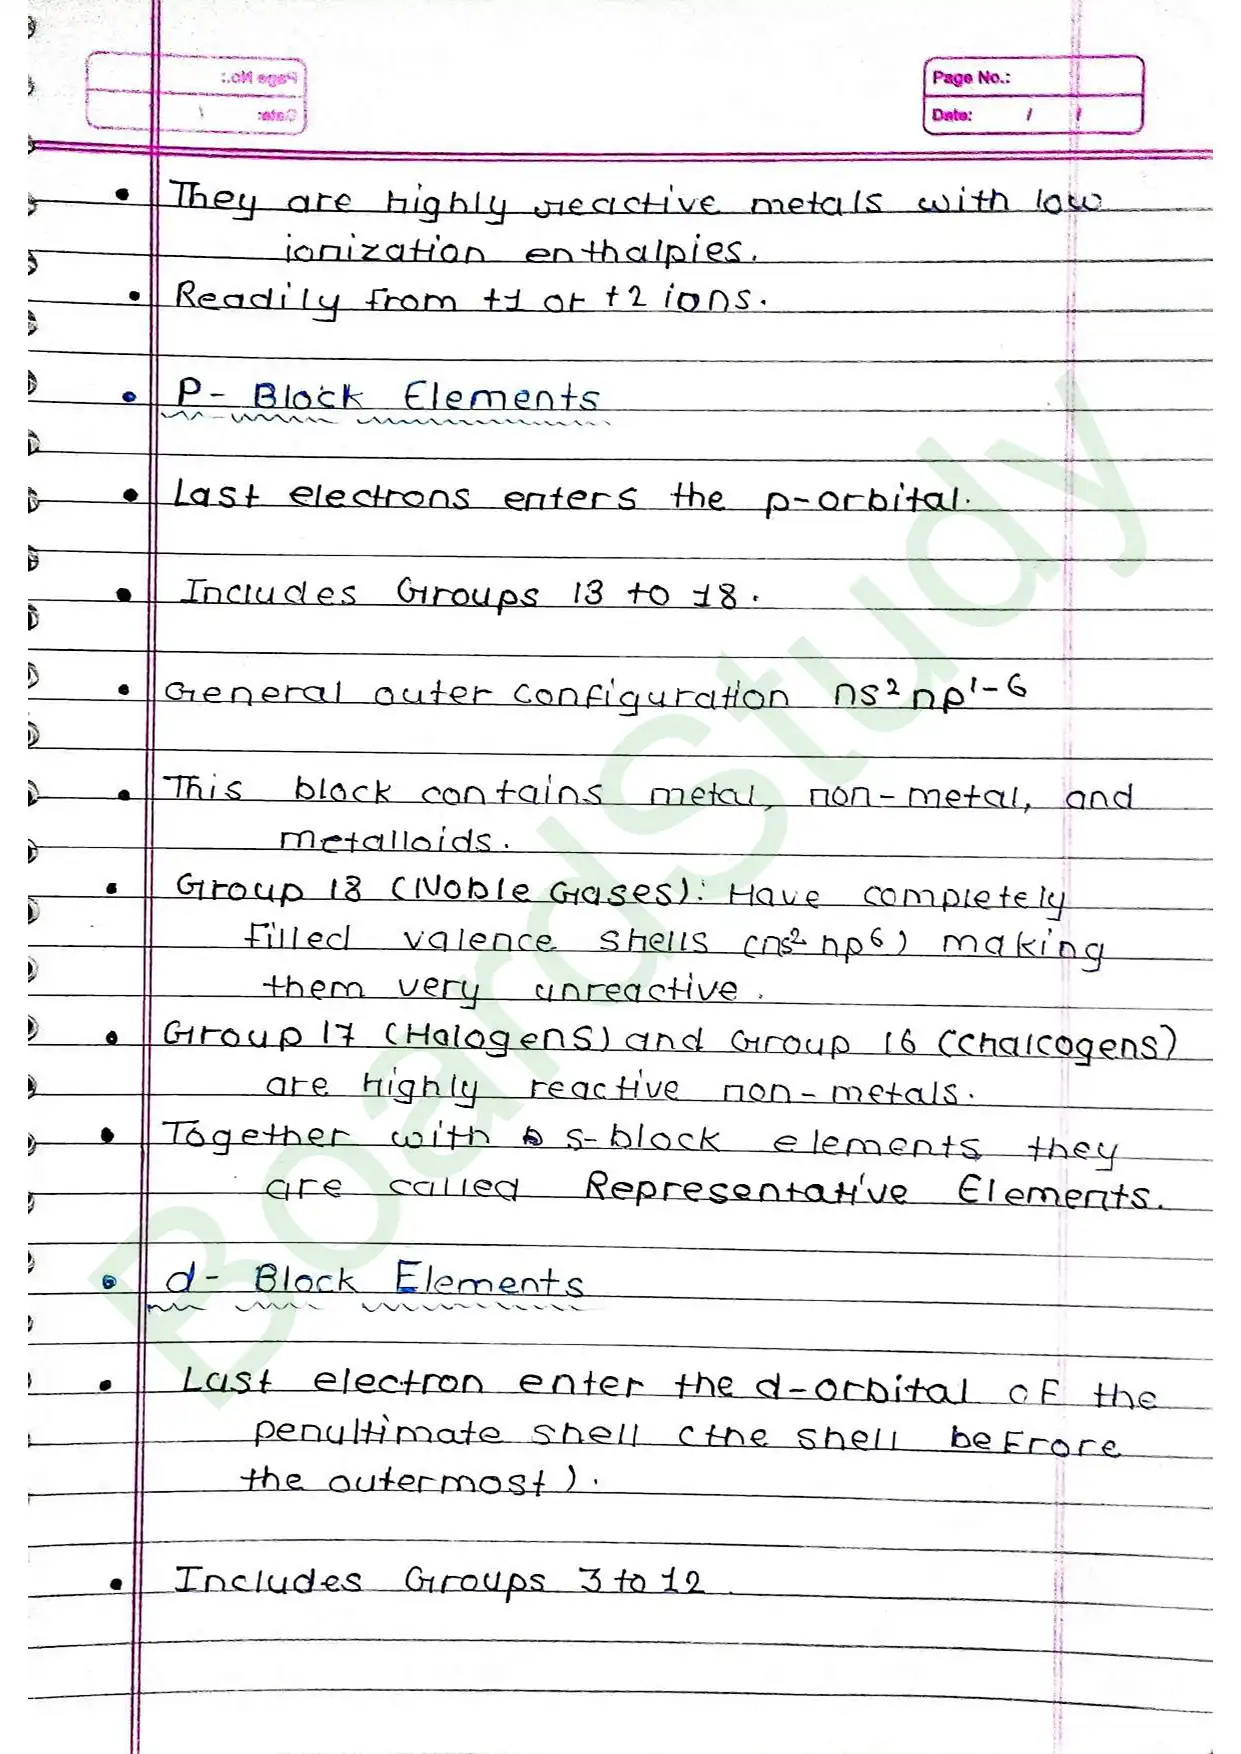 Page No.:
Date: / /
Page No.:
Date: /
• They are highly reactive metals with low
ionization enthalpies.
• Readily from +1 or +2 ions.
• P- Block Elements
• Last electrons enters the p-orbital.
• Includes Groups 13 to 18.
• General outer configuration ns² np¹⁻⁶
• This block contains metal, non-metal, and
metalloids.
• Group 18 (Noble Gases): Have completely
filled valence shells (ns² np⁶) making
them very unreactive.
• Group 17 (Halogens) and Group 16 (Chalcogens)
are highly reactive non-metals.
• Together with s-block elements they
are called Representative Elements.
• d- Block Elements
• Last electron enter the d-orbital of the
penultimate shell (the shell befrore
the outermost).
• Includes Groups 3 to 12.
BoardStudy